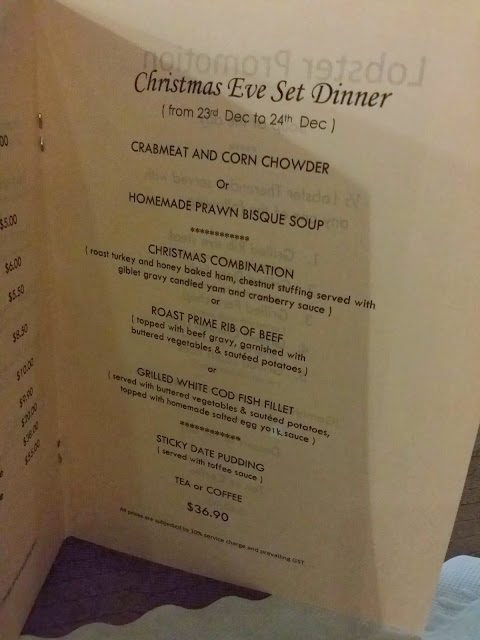 Lobster Promotion
Christmas Eve Set Dinner
( from 23rd Dec to 24th Dec )
CRABMEAT AND CORN CHOWDER
Or
HOMEMADE PRAWN BISQUE SOUP
************
CHRISTMAS COMBINATION
( roast turkey and honey baked ham, chestnut stuffing served with
giblet gravy candied yam and cranberry sauce )
or
ROAST PRIME RIB OF BEEF
( topped with beef gravy, garnished with
buttered vegetables & sautéed potatoes )
or
GRILLED WHITE COD FISH FILLET
( served with buttered vegetables & sautéed potatoes,
topped with homemade salted egg yolk sauce )
************
STICKY DATE PUDDING
( served with toffee sauce )
TEA or COFFEE
$36.90
All prices are subjected to 10% service charge and prevailing GST
$5.00
$6.00
$5.50
$8.50
$10.00
$9.90